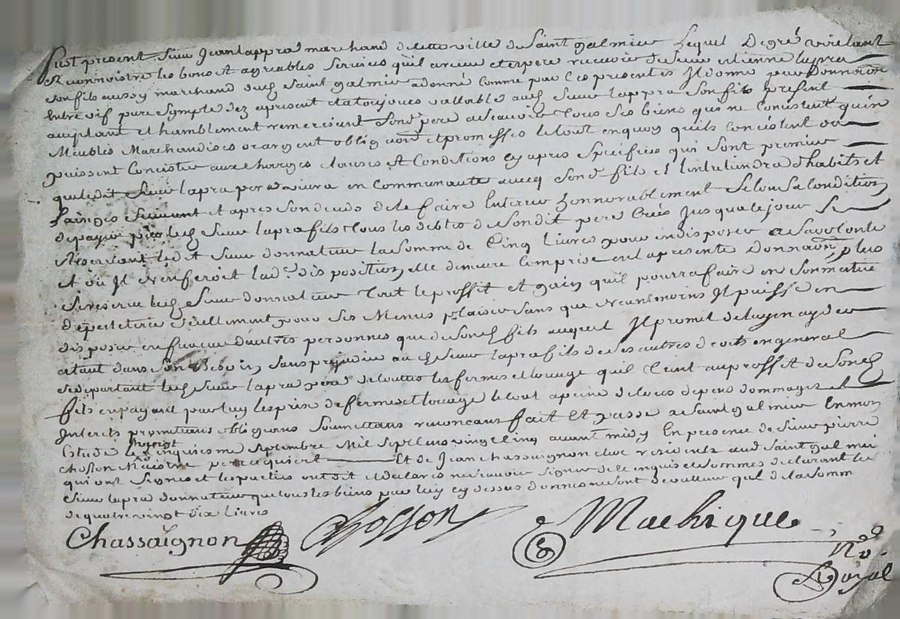 fust present Sieur Jean lapra marchand de cette ville de Saint galmier Lequel De gré voulant
et connoistre les bons et agreables Services quil a receu et espere recevoir de Sieur etienne lapra
Son fils aussy marchand dud Saint galmier a donné comme par les presentes Il donne par Donnation
Entre vif pure Symple dez apresent et a toujours vallable aud Sieur lapra Son fils present
acceptant et humblement remerciant Sond pere a Scavoir tous Ses biens qui ne Consistent qu'en
Meubles Marchandises or argent obligaon et promesses le tout en quoy quils consistent ou
puissent Consister aux charges clauses et Conditions cy apres Specifiées qui Sont premier
que led Sieur lapra pere vivra en communauté avecq Sond fils et l'entretiendra d'habits et
et apres Son deceds de le faire Enterrer honnorablement Selon Sa Condition
de payer par led Sieur lapra fils tous les debtes de Sondit pere Crées Jusqua le jour Se
Reservant ledit Sieur donnateur la Somme de Cinq Livres pour en disposer a Sa volonté
et ou Il n'en feroit lad disposition elle demeure Comprise en la presente Donnaon plus
Se reserve led Sieur donnateur tout le proffit et gain quil pourra faire en Son metier
Seullement pour Ses Menus plaisirs Sans que neantmoins Il puisse en
disposer en faveur d'autres personnes que de Sond fils auquel Il promet de luy en ayder
etant dans Son besoin Sans prejudice aud Sieur lapra fils de Ses autres droits en general
Se departant led Sieur lapra pere de touttes les fermes et louage quil tient au proffit de Sond
fils en payant par luy les prix de ferme et louage le tout a peine de tous depens dommages et
Interets promettans obligeons Soumettans renonceans fait Et passé a Saint galmier En mon
Estude le cinquiesme Septembre Mil Sept Cens vingt Cinq avant midy En presence de Sieur pierre
chosson Et de Jean chassaignon clerc residents aud Saint galmier
qui ont Signés et les parties ont dit et declarés ne Scavoir Signer de ce enquis et Sommés declarant le
Sieur lapra donnateur que tous les biens par luy cy dessus donnés ne Sont de valleur que de la Somme
de quatre vingt dix livres
Chassaignon Chosson Machique
No
Royal